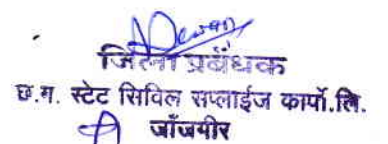 जिला प्रबंधक
छ.ग. स्टेट सिविल सप्लाईज कार्पो.लि.
जाँजगीर